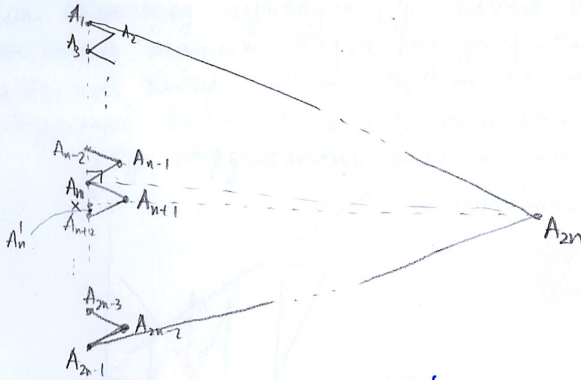 A1
A2
A3
An-2
An-1
An
An+1
X
An+2
An'
A2n
A2n-3
A2n-2
A2n-1